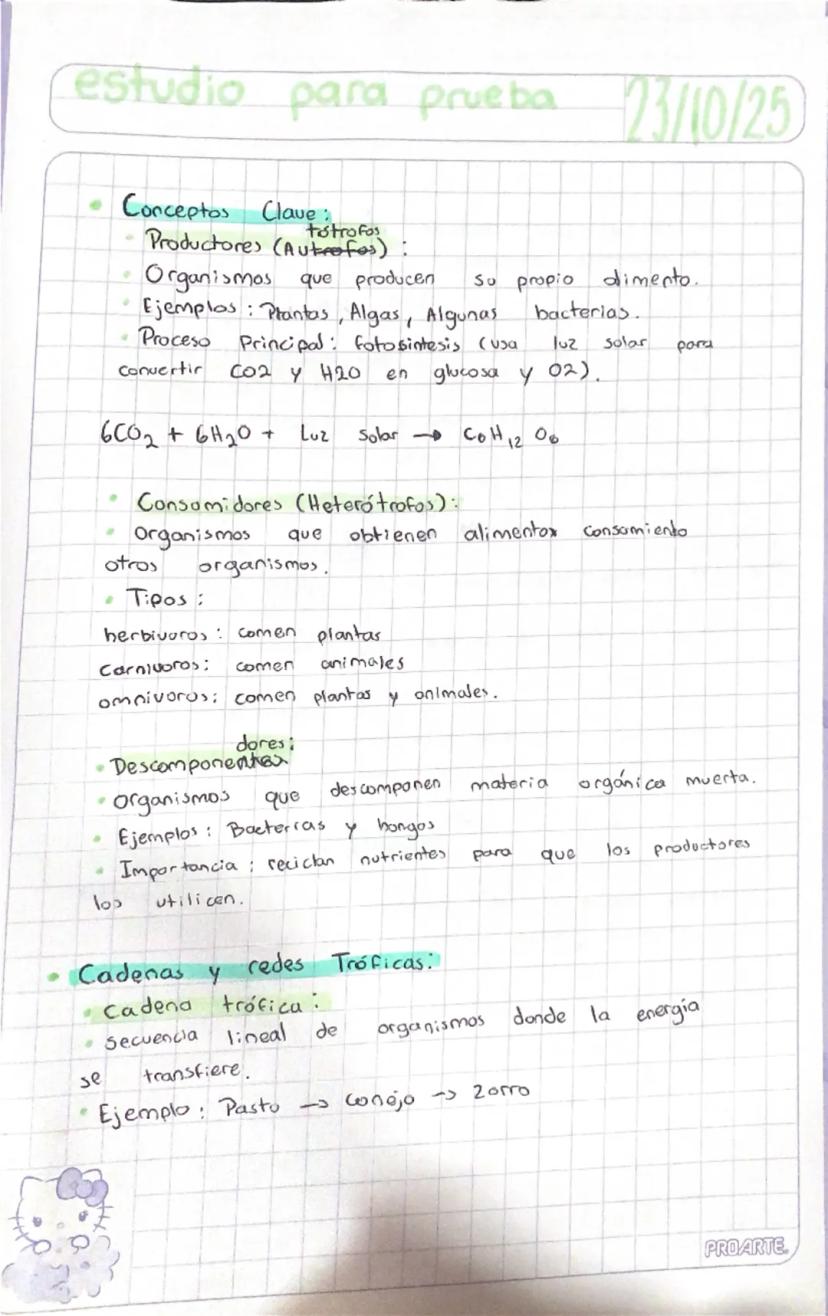 estudio para prueba 23/10/25
• Conceptos Clave:
tótrofos
• Productores (Autrofos) :
• Organismos que producen su propio alimento.
• Ejemplos : Plantas, Algas, Algunas bacterias.
• Proceso Principal: fotosintesis (usa luz solar para
convertir CO2 y H2O en glucosa y O2).
6CO₂ + 6H₂O + Luz solar → C₆H₁₂O₆
• Consumidores (Heterótrofos):
• Organismos que obtienen alimentos consumiento
otros organismos.
• Tipos :
herbivoros : comen plantas
carnivoros: comen animales
omnivoros: comen plantas y animales.
dores:
• Descomponentes
• Organismos que descomponen materia orgánica muerta.
• Ejemplos : Bacterias y hongos
• Importancia : reciclan nutrientes para que los productores
los utilicen.
• Cadenas y redes Tróficas:
• Cadena trófica:
• secuencia lineal de organismos donde la energía
se transfiere.
• Ejemplo : Pasto → conejo → zorro
PROARTE